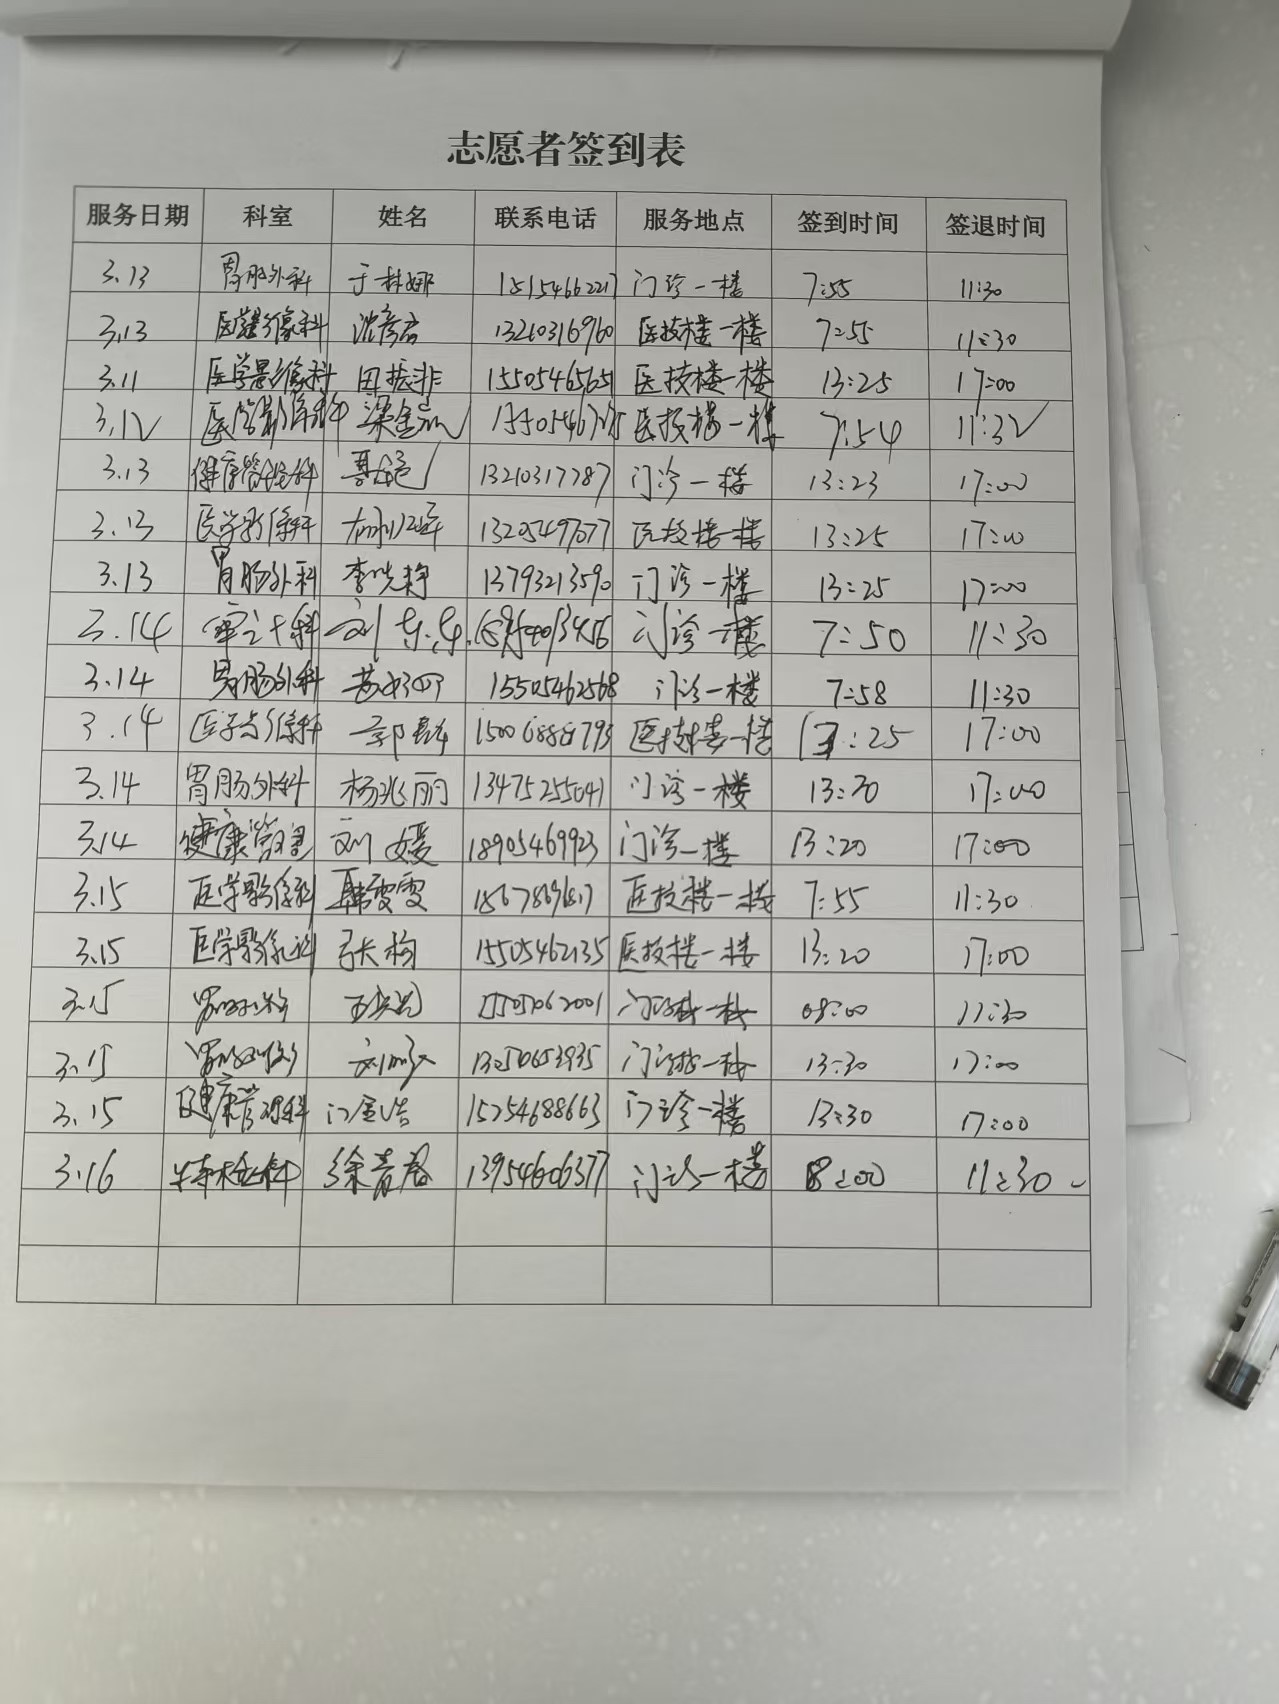 志愿者签到表
服务日期 科室 姓名 联系电话 服务地点 签到时间 签退时间
3.13 胃肠外科 于林娜 15154662217 门诊一楼 7:55 11:30
3.13 医学影像科 13210316960 医技楼一楼 7:55 11:30
3.11 医学影像科 田振非 15505465651 医技楼一楼 13:25 17:00
3.12 医学影像科 医技楼一楼 7:54 11:32
3.13 健康管理科 13210317787 门诊一楼 13:23 17:00
3.13 医学影像科 13205497077 医技楼一楼 13:25 17:00
3.13 胃肠外科 李晓静 13793213590 门诊一楼 13:25 17:00
3.14 审计科 门诊一楼 7:50 11:30
3.14 胃肠外科 15505462568 门诊一楼 7:58 11:30
3.14 医学影像科 郭磊 医技楼一楼 13:25 17:00
3.14 胃肠外科 杨兆丽 13475255041 门诊一楼 13:30 17:00
3.14 健康管理 刘媛 18905469923 门诊一楼 13:20 17:00
3.15 医学影像科 韩雯雯 医技楼一楼 7:55 11:30
3.15 医学影像科 张枸 15505462135 医技楼一楼 13:20 17:00
3.15 胃肠外科 门诊楼一楼 08:00 11:30
3.15 胃肠外科 13250653935 门诊楼一楼 13:30 17:00
3.15 健康管理科 门金浩 15254688663 门诊一楼 13:30 17:00
3.16 特检科 徐青春 13954606377 门诊一楼 8:00 11:30